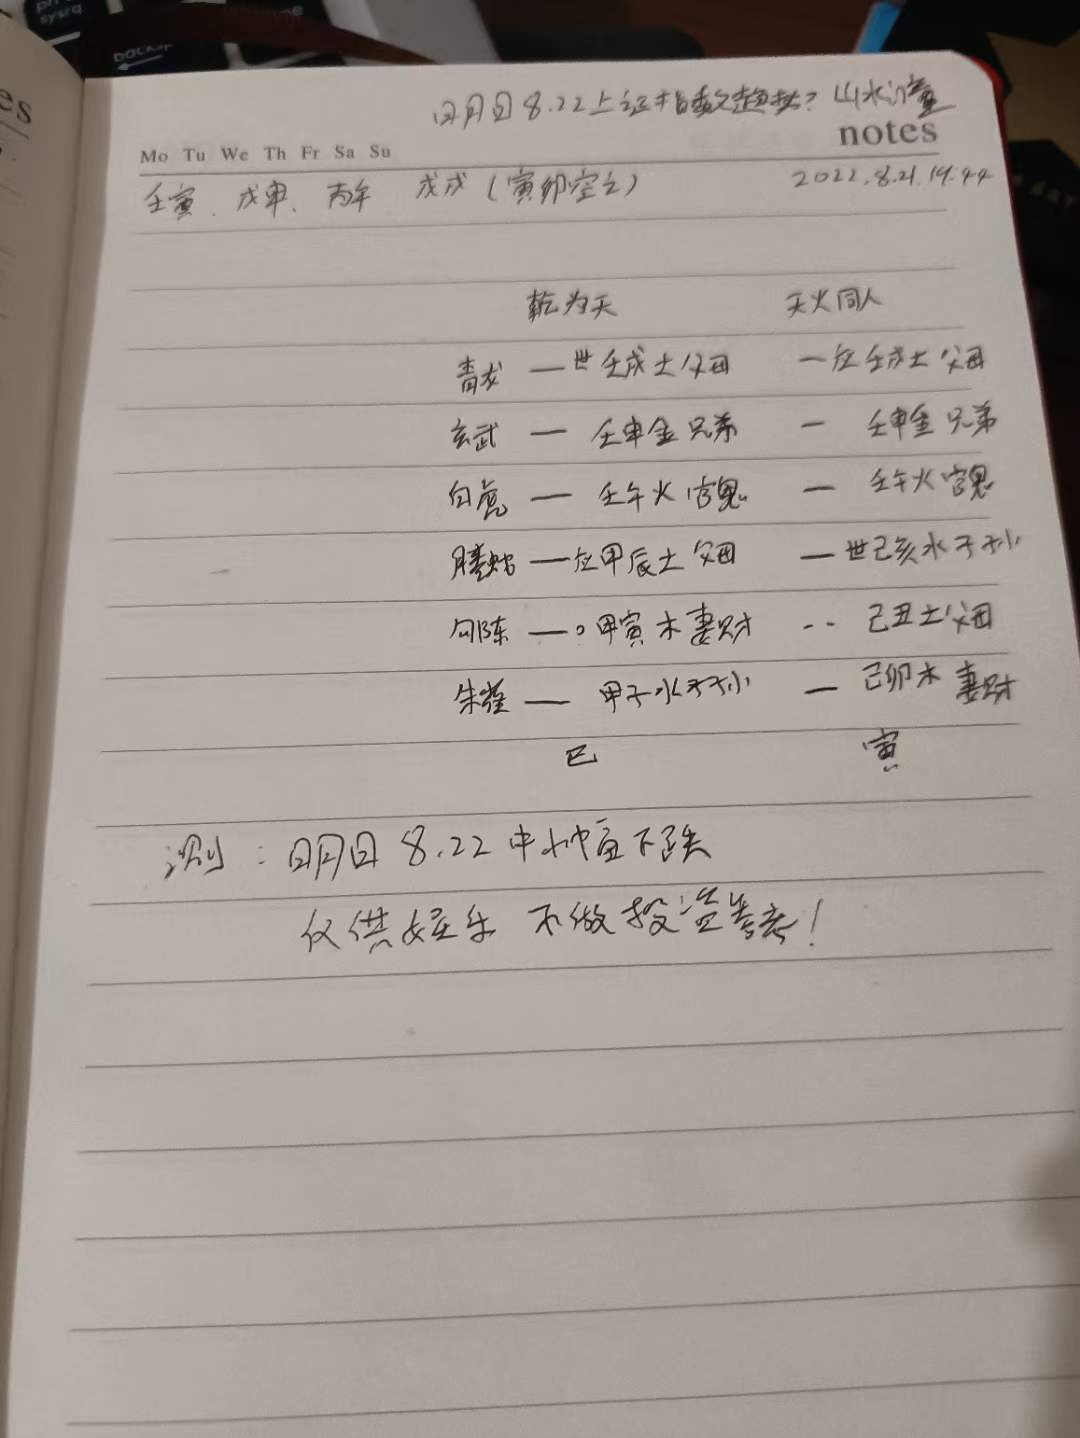 明日8.22上证指数趋势? 山水清
notes
Mo Tu We Th Fr Sa Su
壬寅、戊申、丙午 戊戌(寅卯空亡) 2022.8.21.19.44
乾为天 天火同人
青龙 — 世壬戌土父母 — 应壬戌土父母
玄武 — 壬申金兄弟 — 壬申金兄弟
白虎 — 壬午火官鬼 — 壬午火官鬼
螣蛇 — 应甲辰土父母 — 世己亥水子孙
勾陈 — 。甲寅木妻财 -- 己丑土父母
朱雀 — 甲子水子孙 — 己卯木妻财
巳 寅
测:明日8.22中帅富下跌
仅供娱乐 不做投资参考!
es
sysrq
backsp
day